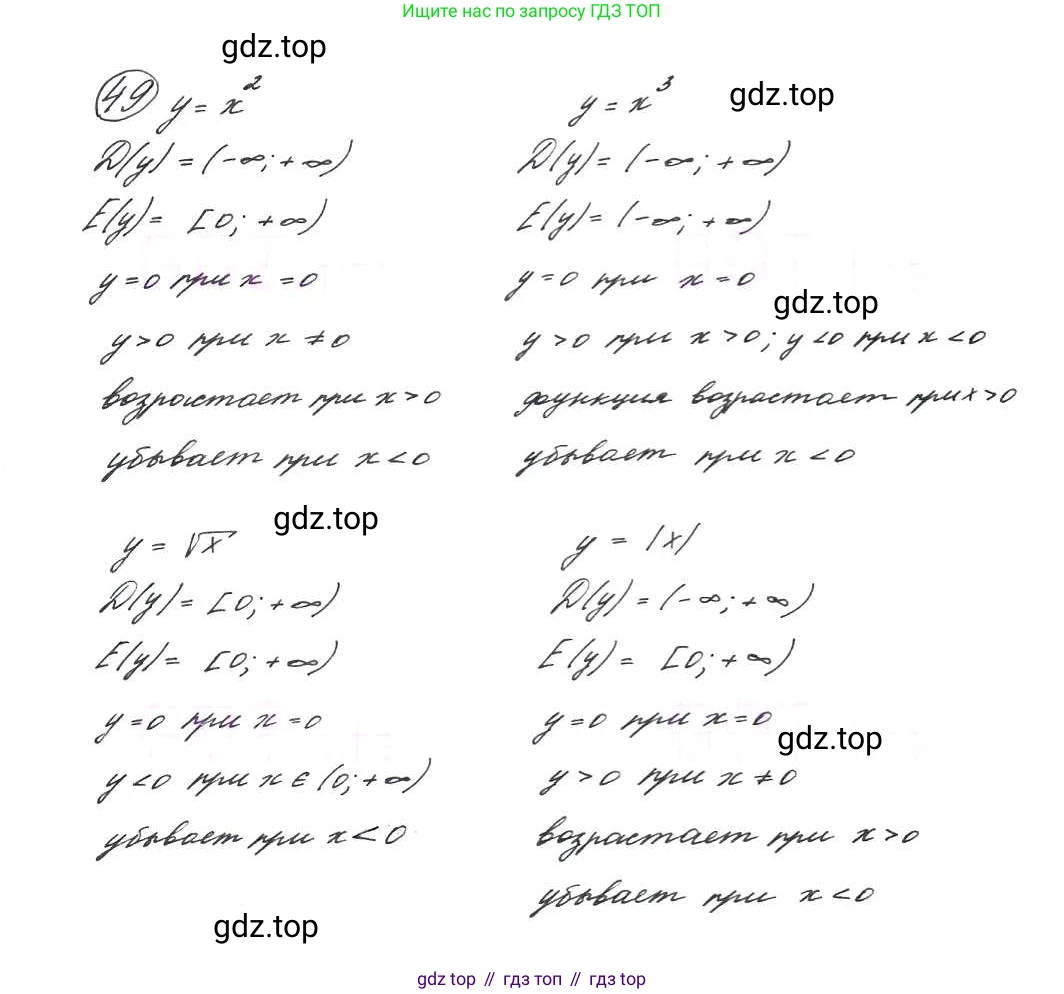 Ищите нас по запросу ГДЗ ТОП
gdz.top
49 y = x²
D(y) = (-∞; +∞)
E(y) = [0; +∞)
y = 0 при x = 0
y > 0 при x ≠ 0
возрастает при x > 0
убывает при x < 0
gdz.top
y = x³
D(y) = (-∞; +∞)
E(y) = (-∞; +∞)
y = 0 при x = 0
gdz.top
y > 0 при x > 0; y < 0 при x < 0
функция возрастает при x > 0
убывает при x < 0
gdz.top
y = √x
D(y) = [0; +∞)
E(y) = [0; +∞)
y = 0 при x = 0
y < 0 при x ∈ (0; +∞)
убывает при x < 0
gdz.top
y = |x|
D(y) = (-∞; +∞)
E(y) = [0; +∞)
y = 0 при x = 0
gdz.top
y > 0 при x ≠ 0
возрастает при x > 0
убывает при x < 0
gdz top // гдз топ // gdz top